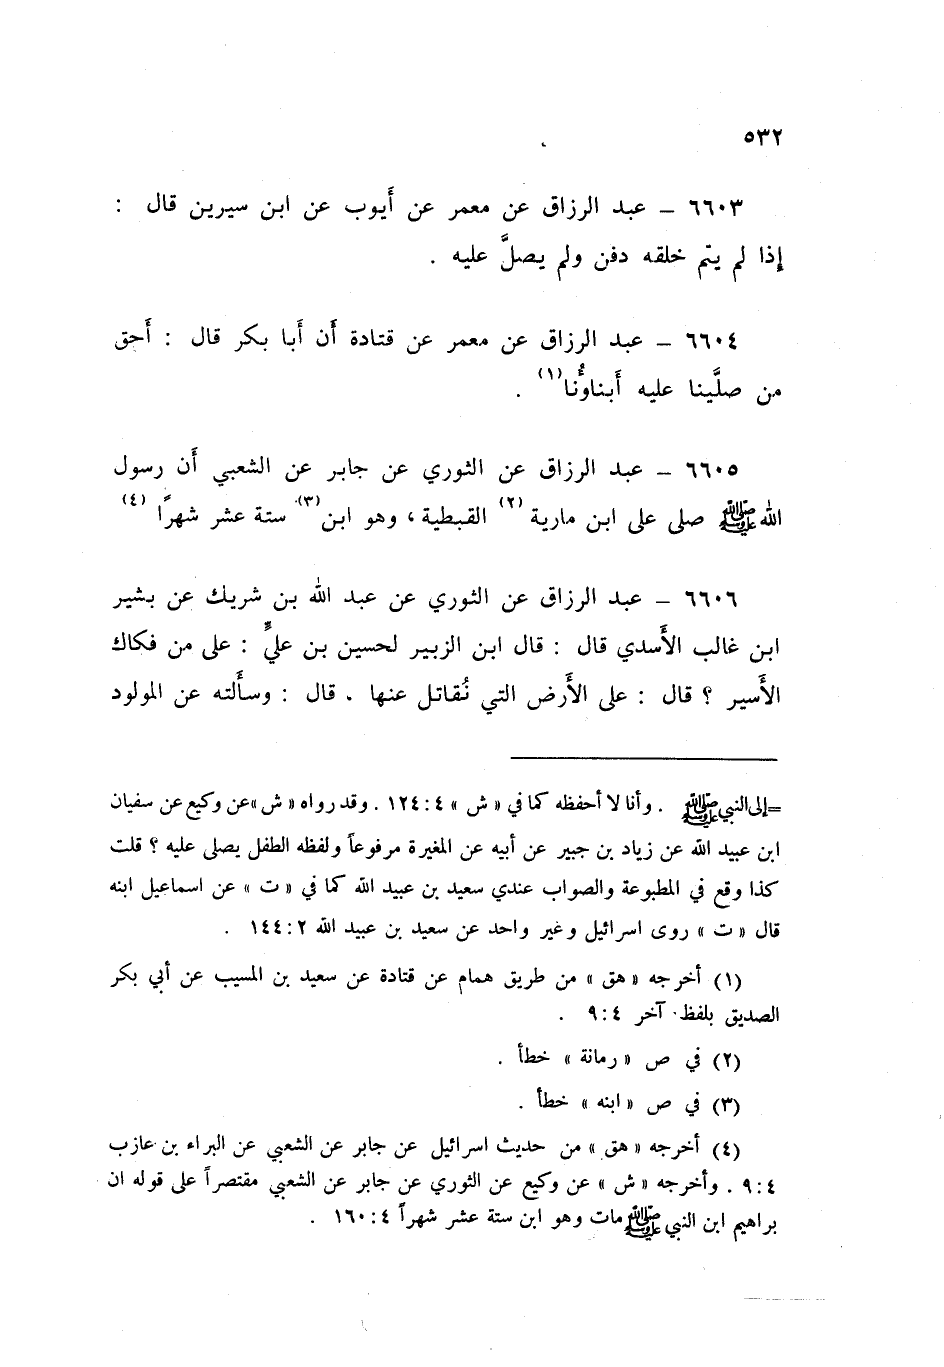 ٥٣٢
٦٦٠٣ ـ عبد الرزاق عن معمر عن أَيوب عن ابن سيرين قال :
إِذا لم يتم خلقه دفن ولم يصلَّ عليه .
٦٦٠٤ ـ عبد الرزاق عن معمر عن قتادة أَن أَبا بكر قال : أَحق
من صلَّينا عليه أَبناؤُنا (١) .
٦٦٠٥ ـ عبد الرزاق عن الثوري عن جابر عن الشعبي أَن رسول
الله ﷺ صلى على ابن مارية (٢) القبطية ، وهو ابن (٣) ستة عشر شهرًا (٤)
٦٦٠٦ ـ عبد الرزاق عن الثوري عن عبد الله بن شريك عن بشير
ابن غالب الأَسدي قال : قال ابن الزبير لحسين بن عليٍّ : على من فكاك
الأَسير ؟ قال : على الأَرض التي نُقاتل عنها . قال : وسأَلته عن المولود
=إلى النبي ﷺ . وأنا لا أحفظه كما في « ش » ٤ : ١٢٤ . وقد رواه « ش » عن وكيع عن سفيان
ابن عبيد الله عن زياد بن جبير عن أبيه عن المغيرة مرفوعاً ولفظه الطفل يصلى عليه ؟ قلت
كذا وقع في المطبوعة والصواب عندي سعيد بن عبيد الله كما في « ت » عن اسماعيل ابنه
قال « ت » روى اسرائيل وغير واحد عن سعيد بن عبيد الله ٢ : ١٤٤ .
(١) أخرجه « هق » من طريق همام عن قتادة عن سعيد بن المسيب عن أبي بكر
الصديق بلفظ آخر ٤ : ٩ .
(٢) في ص « رمانة » خطأ .
(٣) في ص « ابنه » خطأ .
(٤) أخرجه « هق » من حديث اسرائيل عن جابر عن الشعبي عن البراء بن عازب
٤ : ٩ . وأخرجه « ش » عن وكيع عن الثوري عن جابر عن الشعبي مقتصراً على قوله ان
براهيم ابن النبي ﷺ مات وهو ابن ستة عشر شهراً ٤ : ١٦٠ .